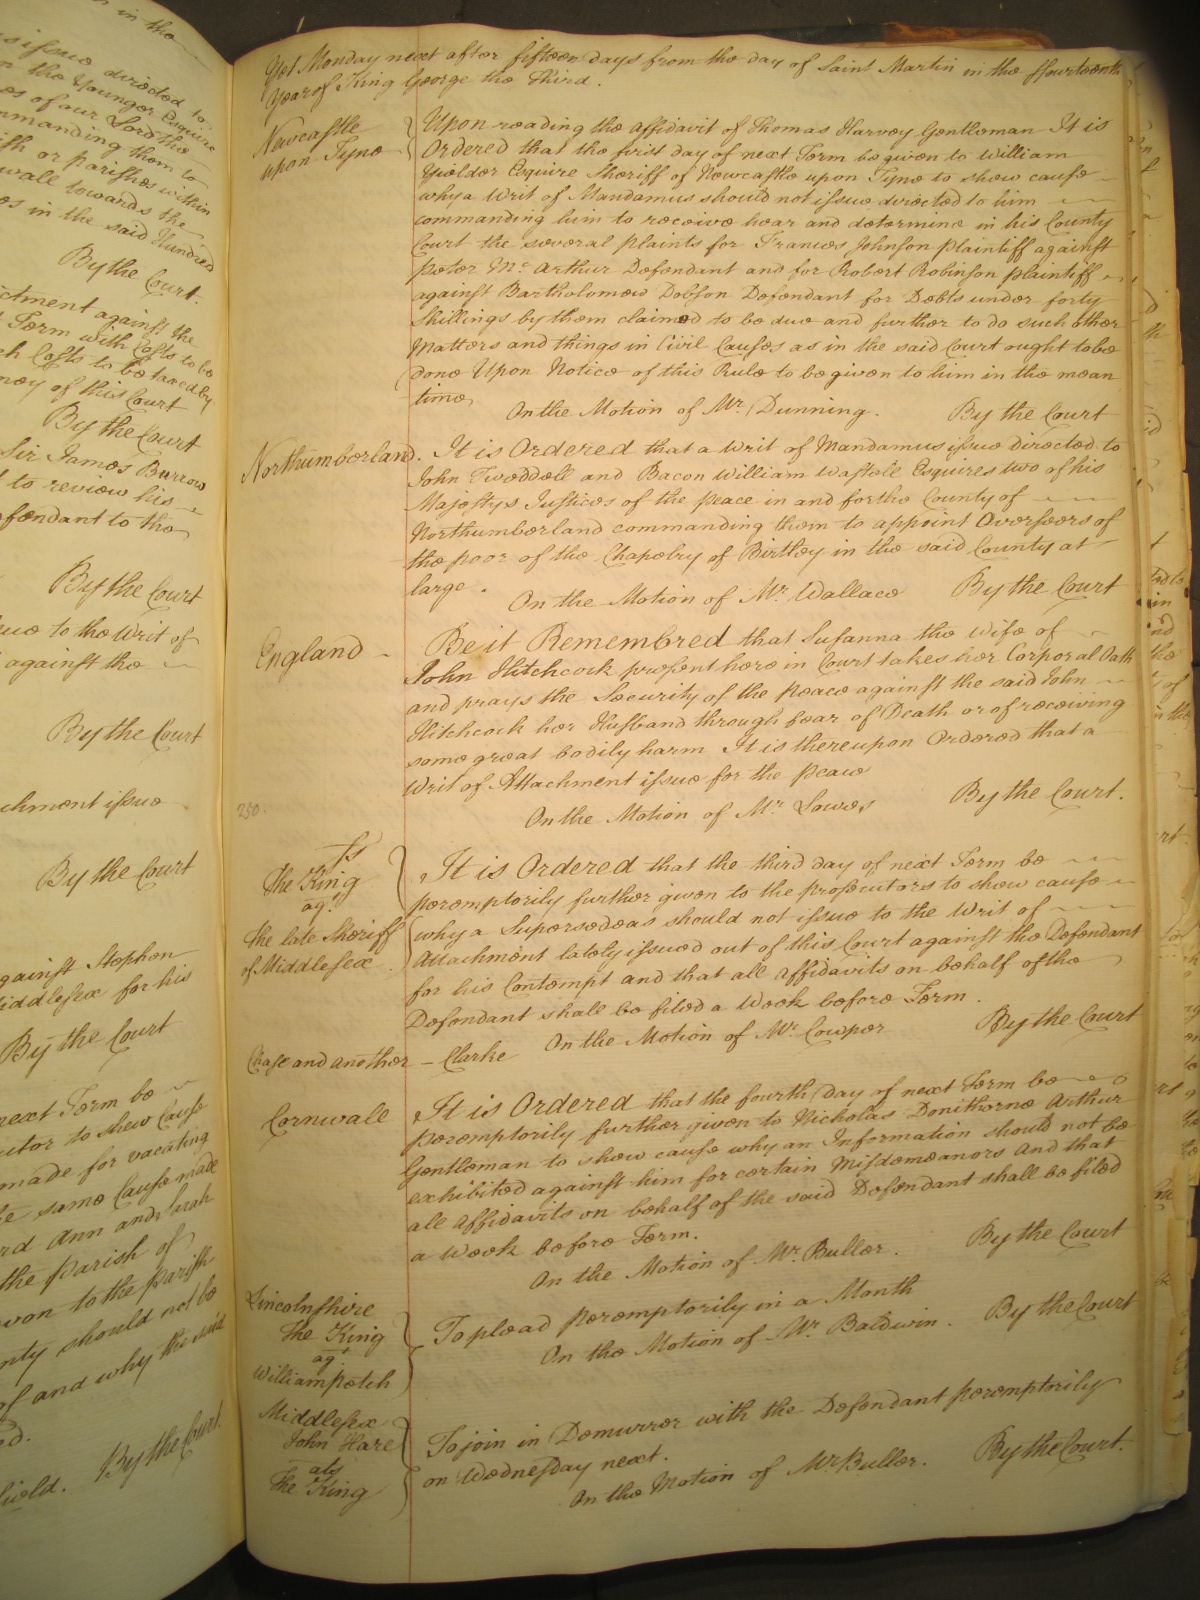 in the
issue directed to
the Younger Esquire
of our Lord the
commanding them to
or parishes within
towards the
in the said Hundred
By the Court.
against the
Term with Costs to be
Costs to be taxed by
of this Court
By the Court
Sir James Burrow
to review his
fendant to the
By the Court
to the Writ of
against the
By the Court
chment issue
By the Court
gainst Stephen
iddlesex for his
By the Court
next Term be
to shew Cause
made for vacating
same Cause made
Ann and Sarah
the parish of
to the parish
should not be
of and why the said
By the Court.
Yet Monday next after fifteen days from the day of Saint Martin in the ffourteenth
Year of King George the Third.
Newcastle
upon Tyne
Upon reading the affidavit of Thomas Harvey Gentleman It is
Ordered that the first day of next Term be given to William
Yielder Esquire Sheriff of Newcastle upon Tyne to show cause
why a Writ of Mandamus should not issue directed to him
commanding him to receive hear and determine in his County
Court the several plaints for Frances Johnson plaintiff against
Peter Mc Arthur Defendant and for Robert Robinson plaintiff
against Bartholomew Dobson Defendant for Debts under forty
Shillings by them claimed to be due and further to do such other
Matters and things in Civil Causes as in the said Court ought to be
done Upon Notice of this Rule to be given to him in the mean
time
On the Motion of Mr. Dunning. By the Court
Northumberland. It is Ordered that a Writ of Mandamus issue directed to
John Tweddell and Bacon William Wastell Esquires two of his
Majestys Justices of the peace in and for the County of
Northumberland commanding them to appoint Overseers of
the poor of the Chapelry of Birtley in the said County at
large.
On the Motion of Mr. Wallace By the Court
England - Be it Remembred that Susanna the Wife of
John Hitchcock present here in Court takes her Corporal Oath
and prays the Security of the peace against the said John
Hitchcock her Husband through fear of Death or of receiving
some great bodily harm It is thereupon Ordered that a
Writ of Attachment issue for the peace
On the Motion of Mr. Lowes By the Court.
250.
The King
agt.
the late Sheriff
of Middlesex
It is Ordered that the third day of next Term be
peremptorily further given to the prosecutors to show cause
why a Supersedeas should not issue to the Writ of
Attachment lately issued out of this Court against the Defendant
for his Contempt and that all affidavits on behalf of the
Defendant shall be filed a Week before Term.
On the Motion of Mr. Cowper By the Court
Chase and another - Clarke
Cornwall It is Ordered that the fourth Day of next Term be
peremptorily further given to Nicholas Donithorne Arthur
Gentleman to show cause why an Information should not be
exhibited against him for certain Misdemeanors and that
all affidavits on behalf of the said Defendant shall be filed
a Week before Term.
On the Motion of Mr. Buller. By the Court
Lincolnshire
The King
agt
William petch
To plead peremptorily in a Month
On the Motion of Mr. Baldwin. By the Court
Middlesex
John Hare
ats
The King
To join in Demurrer with the Defendant peremptorily
on Wednesday next.
On the Motion of Mr. Buller. By the Court.